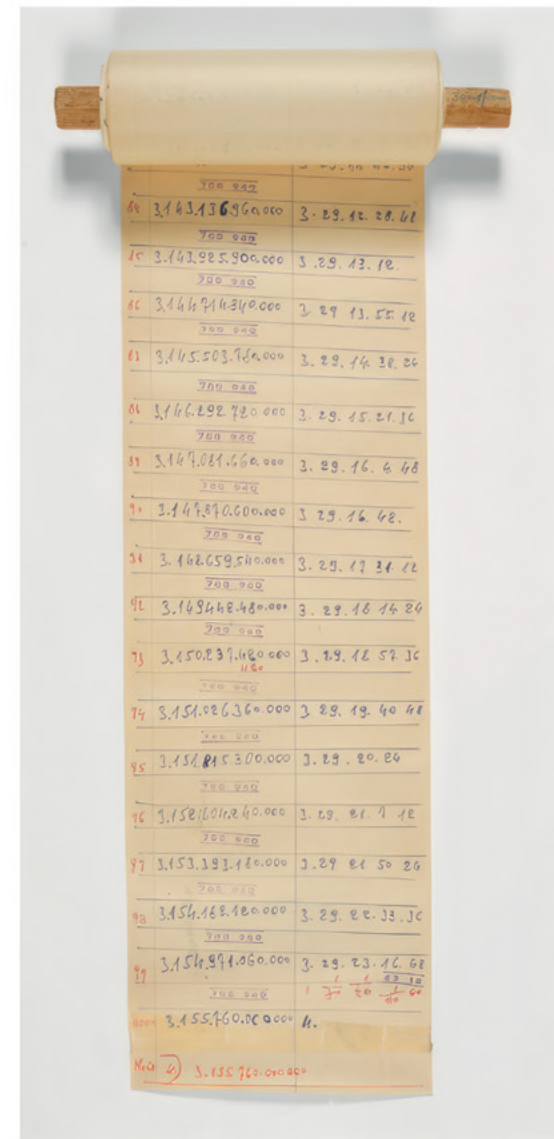 788 940
84 3.143.136.960.000 3. 29. 12. 28. 48
788 940
85 3.143.925.900.000 3. 29. 13. 12.
788 940
86 3.144.714.840.000 3. 29 13. 55. 12
788 940
87 3.145.503.780.000 3. 29. 14. 38. 24
788 940
88 3.146.292.720.000 3. 29. 15. 21. 36
788 940
89 3.147.081.660.000 3. 29. 16. 4. 48
788 940
90 3.147.870.600.000 3 29. 16. 48.
788 940
91 3.148.659.540.000 3. 29. 17 31. 12
788 940
92 3.149.448.480.000 3. 29. 18 14 24
788 940
93 3.150.237.420.000 3. 29. 18 57. 36
420
788 940
94 3.151.026.360.000 3 29. 19. 40 48
788 940
95 3.151.815.300.000 3. 29. 20. 24
788 940
96 3.152.604.240.000 3. 29. 21. 7 12
788 940
97 3.153.393.180.000 3. 29 21 50 24
788 940
98 3.154.182.120.000 3. 29. 22. 33. 36
788 940
99 3.154.971.060.000 3. 29. 23. 16. 48
788 940
1000 3.155.760.000.000 4.
Mois 4) 3.155.760.000.000